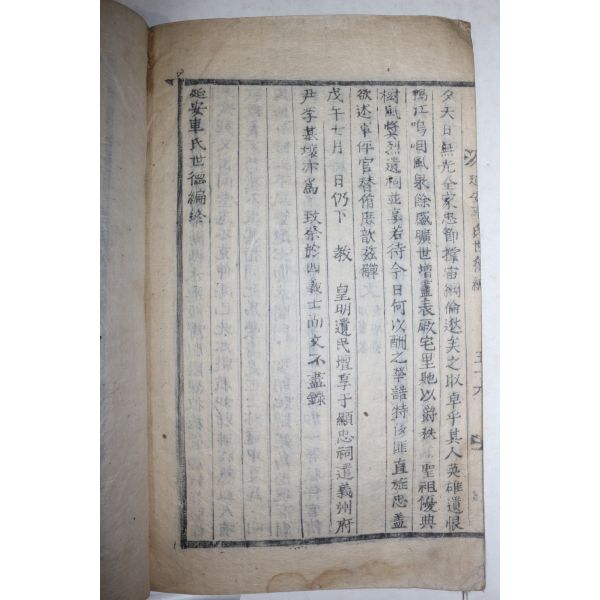 夕天日無光全家忠節撑宙綱倫邈矣之取卓乎其人英雄遺恨
鴨江嗚咽風泉餘感曠世增盡表厥宅里馳以爵秩 聖祖優典
樹風奬烈遺祠並享若待今日何以酬之華譜特改匪直旌忠盖
欲述事伻官替侑庶歆玆觶
戊午七月 日仍下 教 皇明遺民壇享于顯忠祠遣義州府
尹李基壤亦爲 致祭於四義士而文不盡錄
延安車氏世德編終
延安車氏世德編
五十六